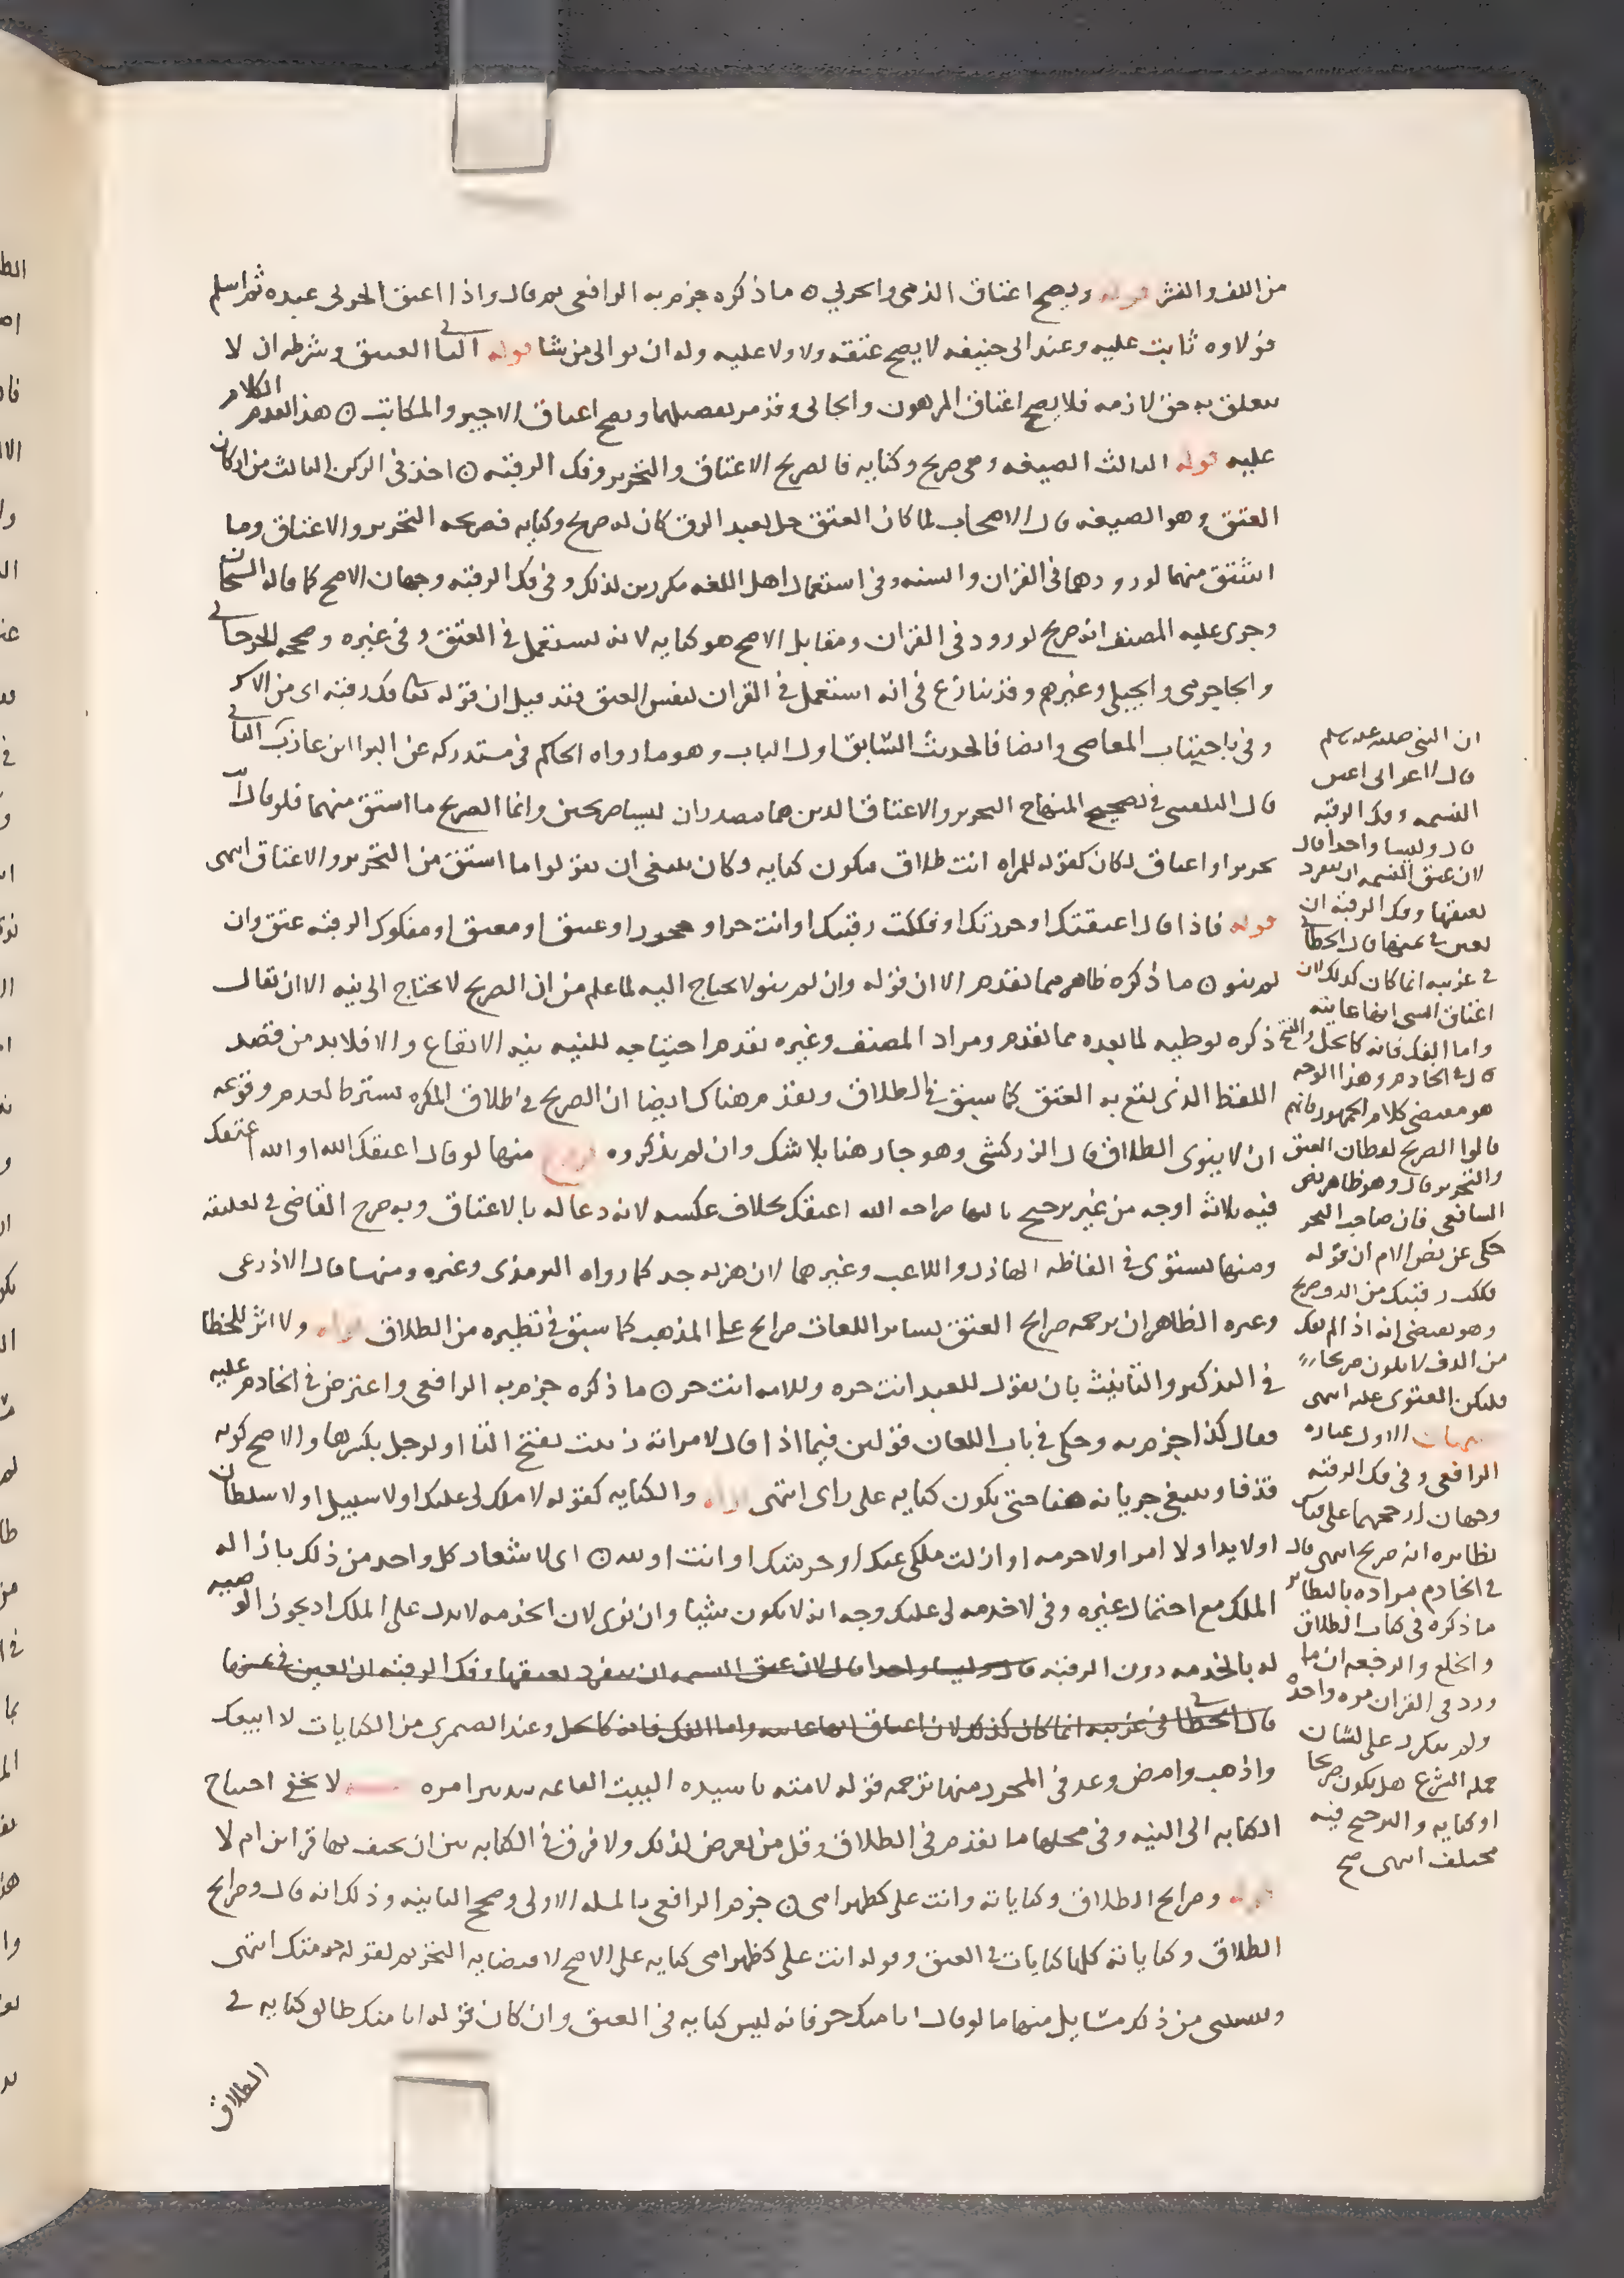 من اللف والنشر قوله ويصح اعتاق الذمي والحربي ه ما ذكره جزم به الرافعي ثم قال واذا اعتق الحربي عبده ثم اسلم
فولاوه ثابت عليه وعند ابي حنيفه لا يصح عتقه ولا ولا عليه وله ان يوالي من شا قوله الثاني العتيق وشرطه ان لا
يتعلق به حق لازم فلا يصح اعتاق المرهون والجاني وقد مر تفصيلهما ويصح اعتاق الاجير والمكاتب ه هذا تقدم الكلام
عليه قوله الثالث الصيغه وهي صريح وكنايه فالصريح الاعتاق والتحرير وفك الرقبه ه اخذ في الركن الثالث من اركان
العتق وهو الصيغه قال الاصحاب لما كان العتق حل لقيد الرق كان له صريح وكنايه فصريحه التحرير والاعتاق وما
اشتق منهما لورودهما في القران والسنه وفي استعمال اهل اللغه مكررين لذلك وفي فك الرقبه وجهان الاصح كما قاله الشيخان
وجرى عليه المصنف انه صريح لوروده في القران ومقابل الاصح هو كنايه لانه يستعمل في العتق وفي غيره وصححه الجرجاني
والجاجرمي والجيلي وغيرهم وقد ينازع في انه استعمل في القران لنفس العتق فقد قيل ان قوله تعالى فك رقبه اي من الاسر
وفي باجتناب المعاصي وايضا فالحديث السابق اول الباب وهو ما رواه الحاكم في مستدركه عن البرا ابن عازب
قال البلقيني في تصحيح المنهاج التحرير والاعتاق الذين هما مصدران ليسا صريحين وانما الصريح ما اشتق منهما فلو قال انت
تحرير او اعتاق لكان كقوله للمراه انت طلاق فيكون كنايه وكان ينبغي ان يقولوا ما اشتق من التحرير والاعتاق انتهى
قوله فاذا قال اعتقتك او حررتك او فككت رقبتك او انت حر او محرر او عتيق او معتق او مفكوك الرقبه عتق وان
لم ينو ه ما ذكره ظاهر مما تقدم الا ان قوله وان لم ينو لا يحتاج اليه لما علم من ان الصريح لا يحتاج الى نيه الا ان يقال
ذكره توطيه لما بعده مما تقدم ومراد المصنف وغيره بعدم احتياجه للنيه نيه الايقاع والا فلا بد من قصد
اللفظ الذي يقع به العتق كما سبق في الطلاق وتقدم هناك ايضا ان الصريح في طلاق المكره يشترط لعدم وقوعه
ان لا ينوي الطلاق قال الزركشي وهو جار هنا بلا شك وان لم يذكروه فروع منها لو قال اعتقك الله او الله اعتقك
فيه ثلاثه اوجه من غير ترجيح ثالثها صراحه الله اعتقك بخلاف عكسه لانه دعا له بالاعتاق وبه صرح القاضي في تعليقه
ومنها يستوي في الفاظه الهازل واللاعب وغيرهما لان هزله جد كما رواه الترمذي وغيره ومنها قال الاذرعي
وغيره الظاهر ان ترجمه صرايح العتق بساير اللغات صرايح على المذهب كما سبق في نظيره من الطلاق قوله ولا اثر للخطا
في التذكير والتانيث بان يقول للعبد انت حره وللامه انت حر ه ما ذكره جزم به الرافعي واعترض في الخادم عليه
فقال كذا جزم به وحكى في باب اللعان قولين فيما اذا قال لامراته زنيت بفتح التا او لرجل بكسرها والاصح كونه
قذفا وينبغي جريانه هنا حتى يكون كنايه على راي انتهى قوله والكنايه كقوله لا ملك لي عليك او لا سبيل او لا سلطان
او لا يد او لا امر او لا خدمه او ازلت ملكي عنك او حرمتك او انت لله ه اي لاشعار كل واحد من ذلك بازاله
الملك مع احتمال غيره وفي لا خدمه لي عليك وجه انه لا يكون شيئا وان نوى لان الخدمه لا تدل على الملك اذ يجوز الوصيه
له بالخدمه دون الرقبه قال وليسا واحدا قال لان عتق النسمه ان ينفرد بعتقها وفك الرقبه ان يعين في عتقها
قال الخطابي في غريبه انما كان كذلك لان اعتاق واما الفك فانه كالحل وعند الصيمري من الكنايات لا ابيعك
واذهب وامض وعد في المحرر منها ترجمه قوله لامته يا سيده البيت لا يخفى احتياج
الكنايه الى النيه وفي محلها ما تقدم في الطلاق وقل من تعرض لذلك ولا فرق في الكنايه بين ان يحتف بها قراين ام لا
قوله وصرايح الطلاق وكناياته وانت علي كظهر امي ه جزم الرافعي بالمسله الاولى وصحح الثانيه وذلك انه قال وصرايح
الطلاق وكناياته كلها كنايات في العتق وقوله انت علي كظهر امي كنايه على الاصح لاقتضايه التحريم كقوله حرمتك انتهى
ويستثنى من ذلك مسايل منها ما لو قال انا منك حر فانه ليس كنايه في العتق وان كان قوله انا منك طالق كنايه في
الطلاق
ان النبي صلى الله عليه وسلم
قال لاعرابي اعتق
النسمه وفك الرقبه
قال وليسا واحدا قال
لان عتق النسمه ان ينفرد
بعتقها وفك الرقبه ان
يعين في عتقها قال الخطابي
في غريبه انما كان كذلك لان
اعتاق الشي
واما الفك فانه كالحل والفتح
قال في الخادم وهذا الوجه
هو مقتضى كلام الجمهور فانهم
قالوا الصريح لفظان العتق
والتحرير قال وهو ظاهر نص
الشافعي فان صاحب البحر
حكى عن نص الام ان قوله
فككت رقبتك من الرق صريح
وهو يقتضي انه اذا لم يقل
من الرق لا يكون صريحا
فليكن الفتوى عليه انتهى
تنبيهات الاول عباره
الرافعي وفي فك الرقبه
وجهان ارجحهما على قياس
نظايره انه صريح انتهى قال
في الخادم مراده بالنظاير
ما ذكره في كتاب الطلاق
والخلع والرجعه ان ما
ورد في القران مره واحده
ولم يتكرر على لسان
حمله الشرع هل يكون صريحا
او كنايه والترجيح فيه
مختلف انتهى صح